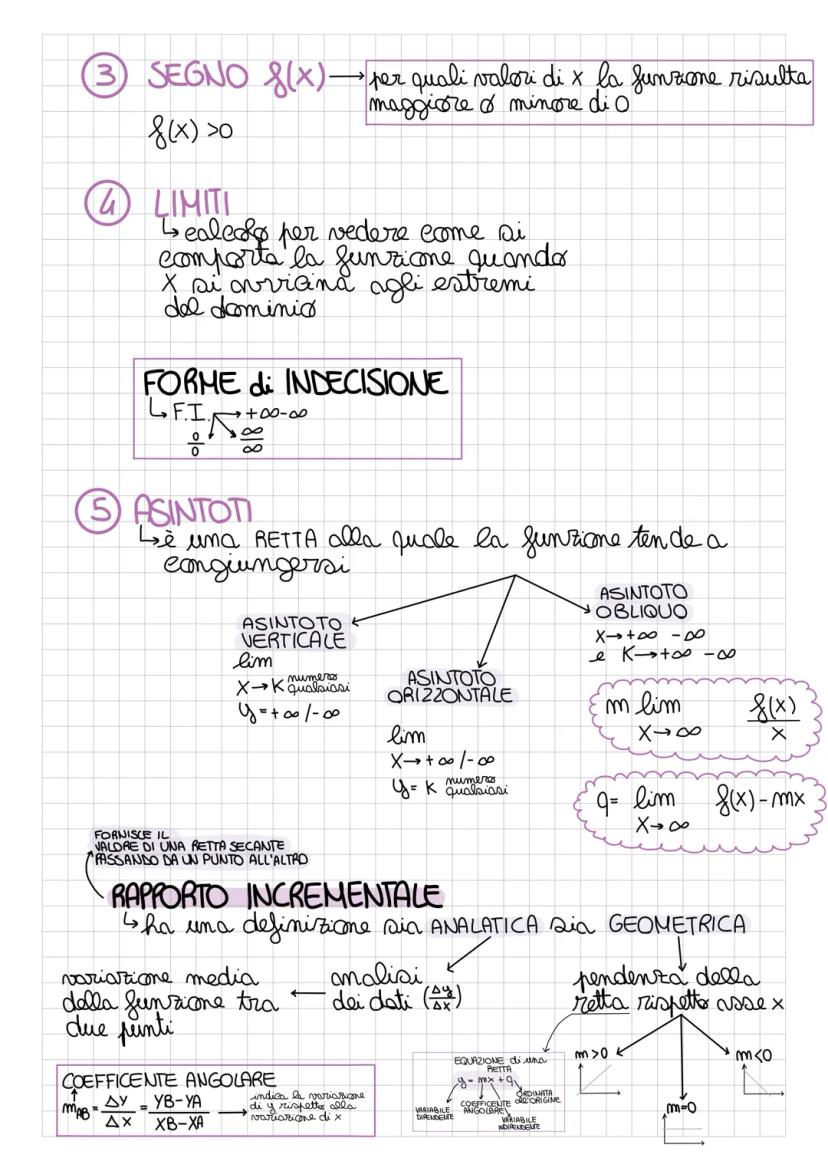 3 SEGNO f(x) → per quali valori di x la funzione risulta
maggiore o minore di 0
f(x) >0
4 LIMITI
↳ calcolo per vedere come si
comporta la funzione quando
X si avvicina agli estremi
del dominio
FORME di INDECISIONE
↳ F.I. → +∞-∞
0/0 ∞/∞
5 ASINTOTI
↳ è una RETTA alla quale la funzione tende a
congiungersi
ASINTOTO
VERTICALE
lim
X→K numero
qualsiasi
y=+∞/-∞
ASINTOTO
ORIZZONTALE
lim
X→+∞/-∞
y=K numero
qualsiasi
ASINTOTO
OBLIQUO
X→+∞ -∞
e K→+∞ -∞
m lim f(x)/x
X→∞
q= lim f(x)-mx
X→∞
FORNISCE IL
VALORE DI UNA RETTA SECANTE
PASSANDO DA UN PUNTO ALL'ALTRO
RAPPORTO INCREMENTALE
↳ ha una definizione sia ANALATICA sia GEOMETRICA
variazione media
della funzione tra
due punti
← analisi
dei dati (Δy/Δx)
pendenza della
retta rispetto asse x
m>0
m=0
m<0
EQUAZIONE di una
RETTA
y=mx+q
VARIABILE
DIPENDENTE
COEFFICENTE
ANGOLARE
VARIABILE
INDIPENDENTE
ORDINATA
all'ORIGINE
COEFFICENTE ANGOLARE
mAB = Δy/Δx = YB-YA/XB-XA → indica la variazione
di y rispetto alla
variazione di x